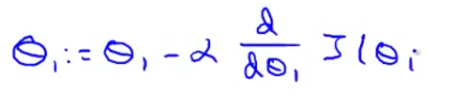 θ₁ := θ₁ - α d/dθ₁ J(θ₁